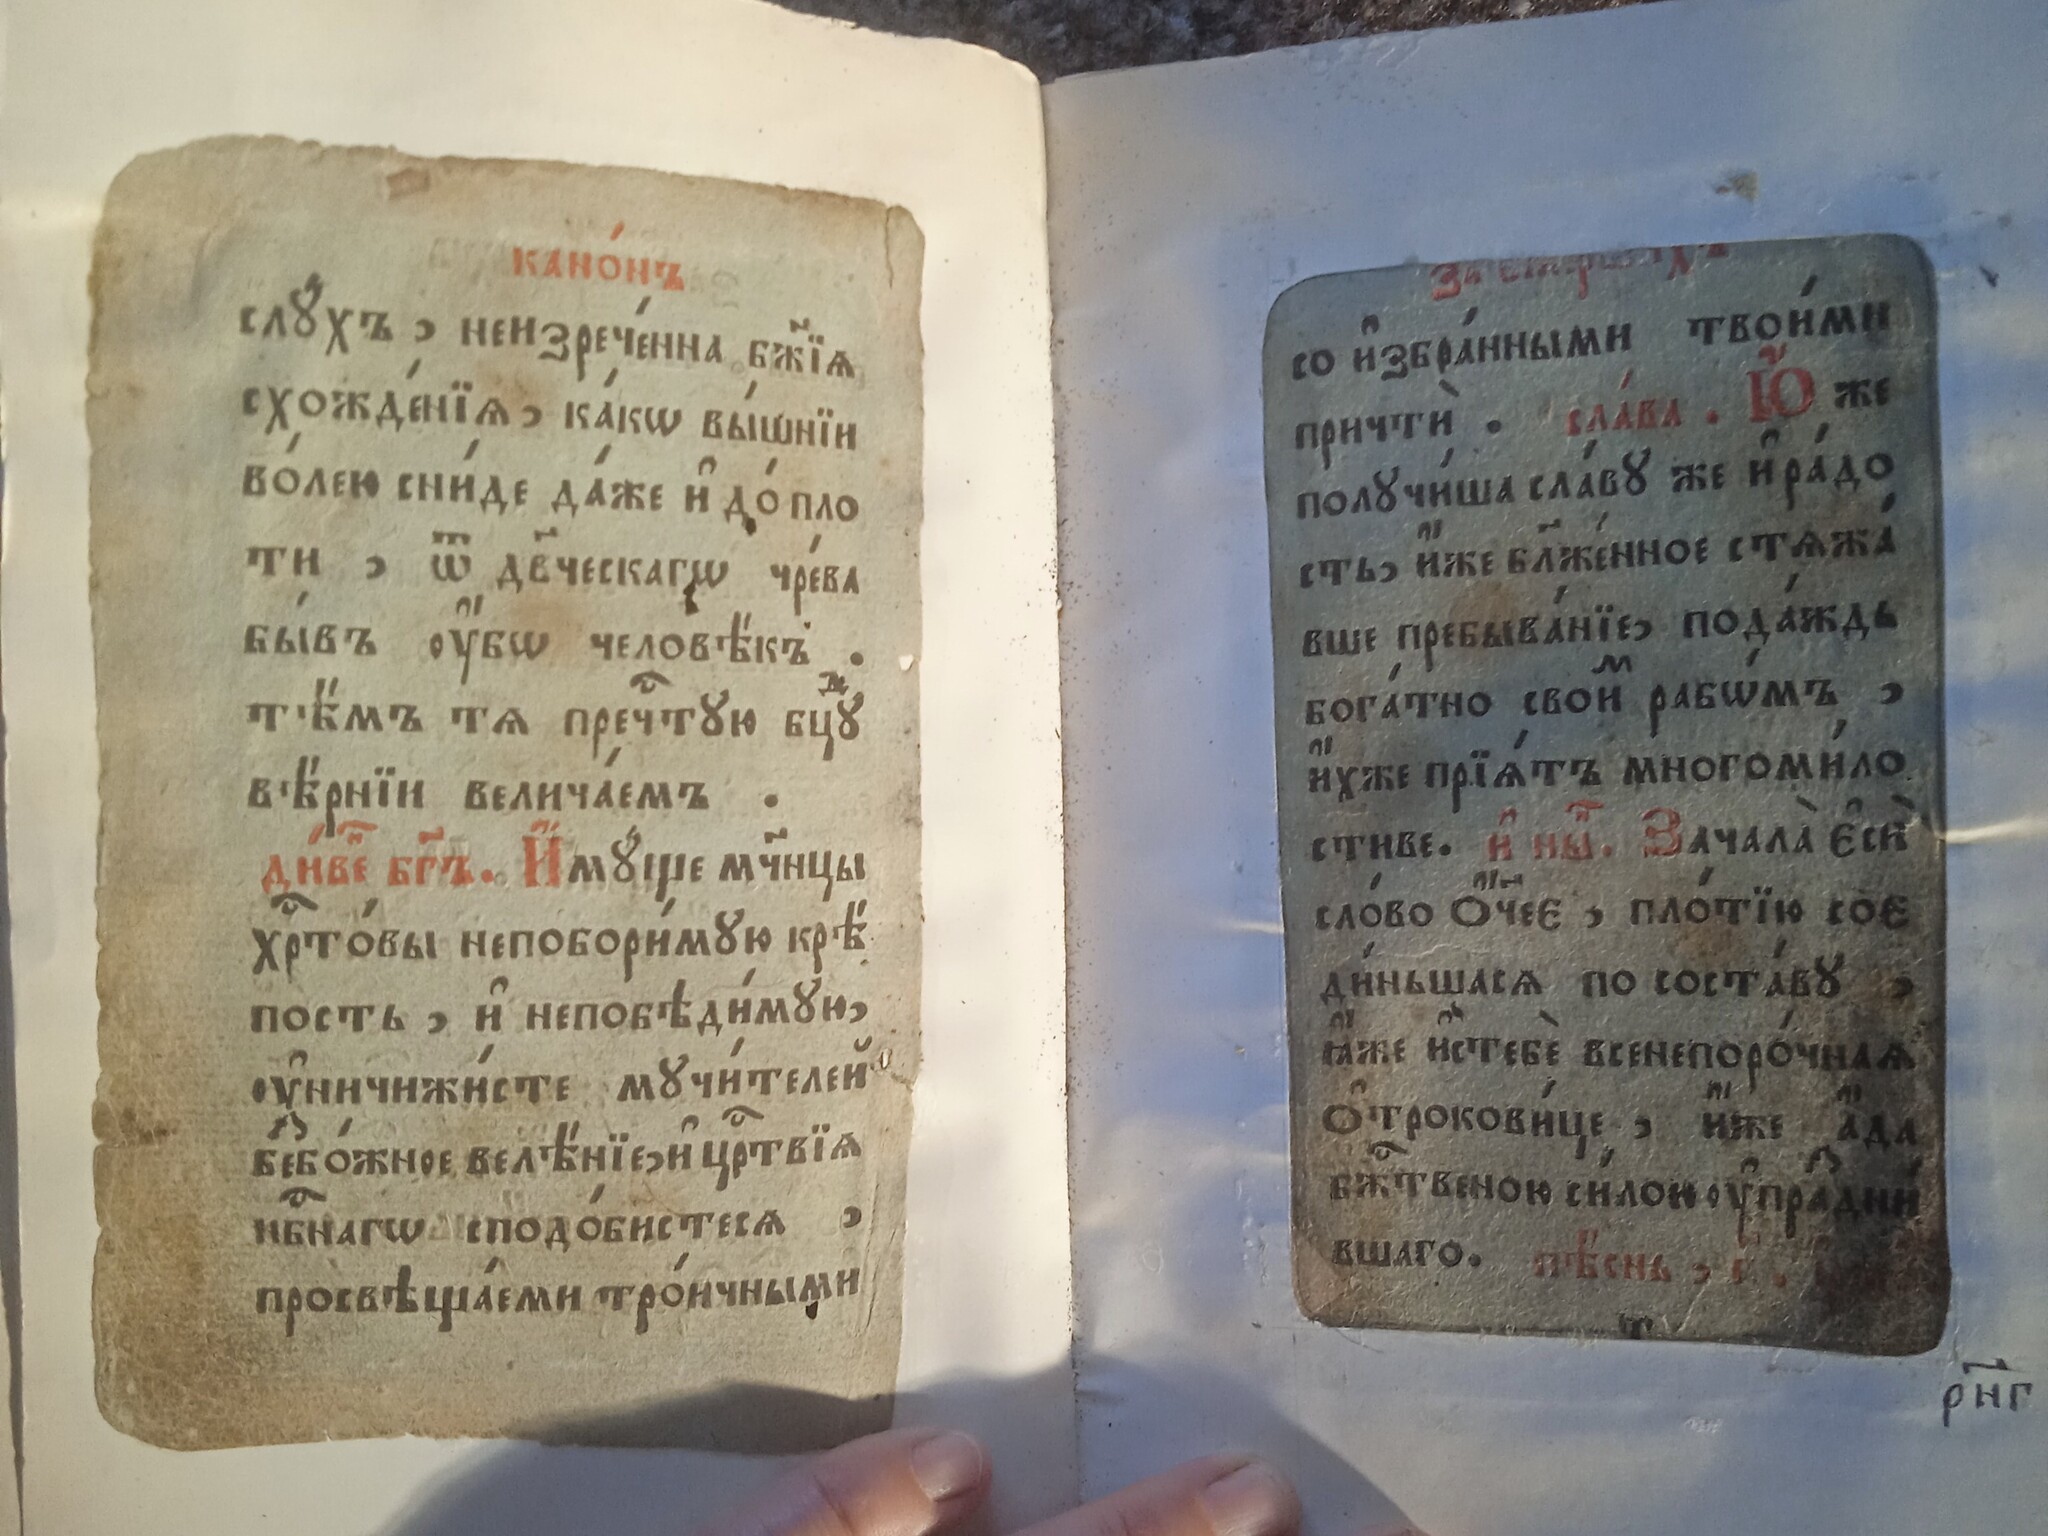 кано́нъ
слꙋ́хъ , неизрече́нна бж҃їѧ
схожде́нїѧ, ка́кѡ вы́шнїи
во́лею сни́де да́же и҆ до́ пло
ти , ѿ дв҃ческагѡ чре́ва
бы́въ оу҆́бѡ человѣ́къ .
тѣ́мъ тѧ преч҇тꙋю бцⷣꙋ
вѣ́рнїи велича́емъ .
ди́ве҇н бг҃ъ. И҆мꙋ́ще мч҃нцы
хр҇то́вы непобори́мꙋю крѣ́
пость , и҆ непобѣди́мꙋю,
оу҆ничижи́сте мꙋчи́телей
беⷥбо́жное велѣ́нїе, и҆ цр҇твїѧ
нб҇нагѡ сподо́бистесѧ ,
просвѣща́еми тро́ичными
За
со и҆збра́нными твои́ми
причтѝ . сла́ва . Ю҆́ же
полꙋчи́ша сла́вꙋ же и҆ ра́до
сть, и҆́же бл҃же́нное стѧжа́
вше пребыва́нїе, пода́ждь
бога́тно своиⷨ рабѡ́мъ ,
и҆́хже прїѧ́тъ многоми́ло
стиве. и҆ нн҃ѣ. Зачала̀ є҆сѝ
сло́во Ѻ҆́ч҃еє , пло́тїю соє
ди́ньшасѧ по соста́вꙋ ,
ꙗ҆́же и҆стебѐ всенепоро́чнаѧ
Ѻ҆трокови́це , и҆́же а҆́да
бж҇твеною си́лою оу҆праⷥдни́
вшаго. пѣ́снь , г .
т
рн҃г